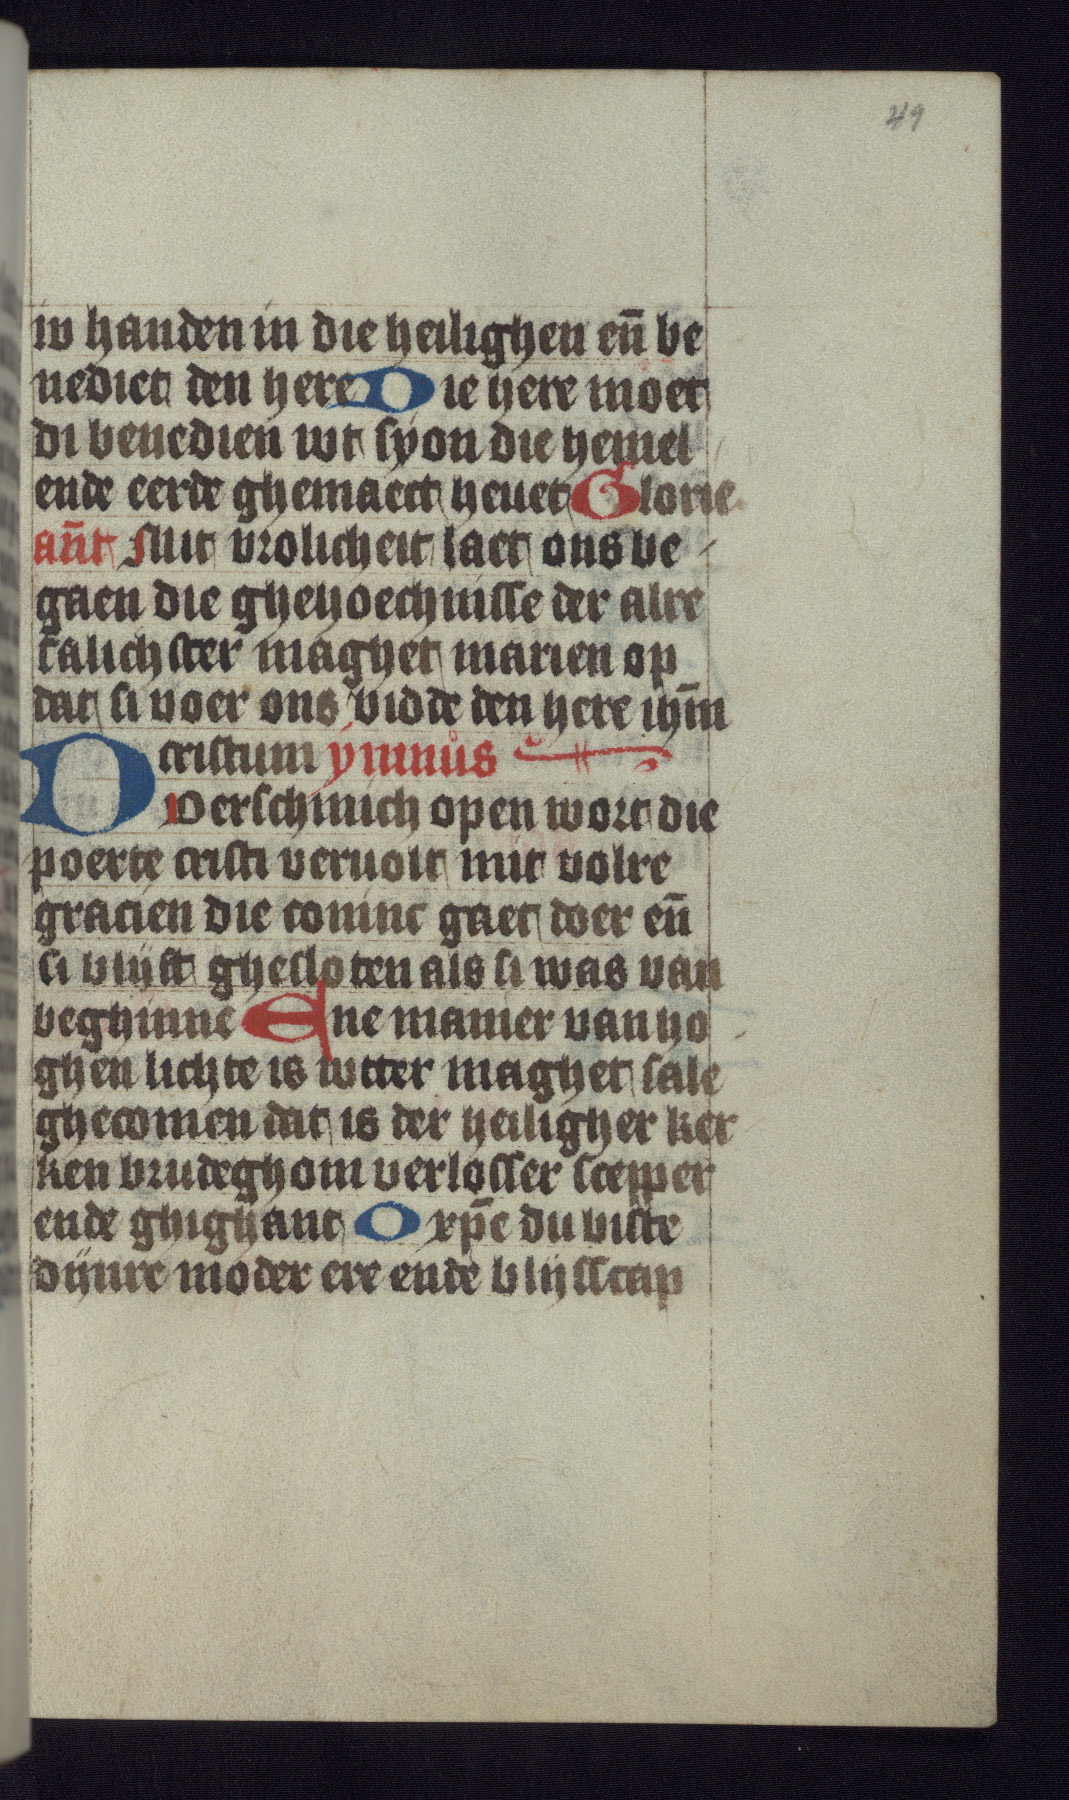 49
iv handen in die heilighen en̄ be
nedict den here Die here moet
di benedien wt syon die hemel
ende eerde ghemaect heuet Glorie
an̄t Mit vrolicheit laet ons be
gaen die ghehoechnisse der alre
salichster maghet marien op
dat si voer ons bidde den here ihm̄
cristum ymnus
O verschinich open wort die
poerte cristi veruolt mit volre
gracien die coninc gaet doer en̄
si blijft ghesloten als si was van
beghinne Ene manier van ho
ghen lichte is wtter maghet sale
ghecomen dat is der heiligher ker
ken brudeghom verlosser scepper
ende ghighant O xp̄e du biste
dijnre moder ere ende blijsscap